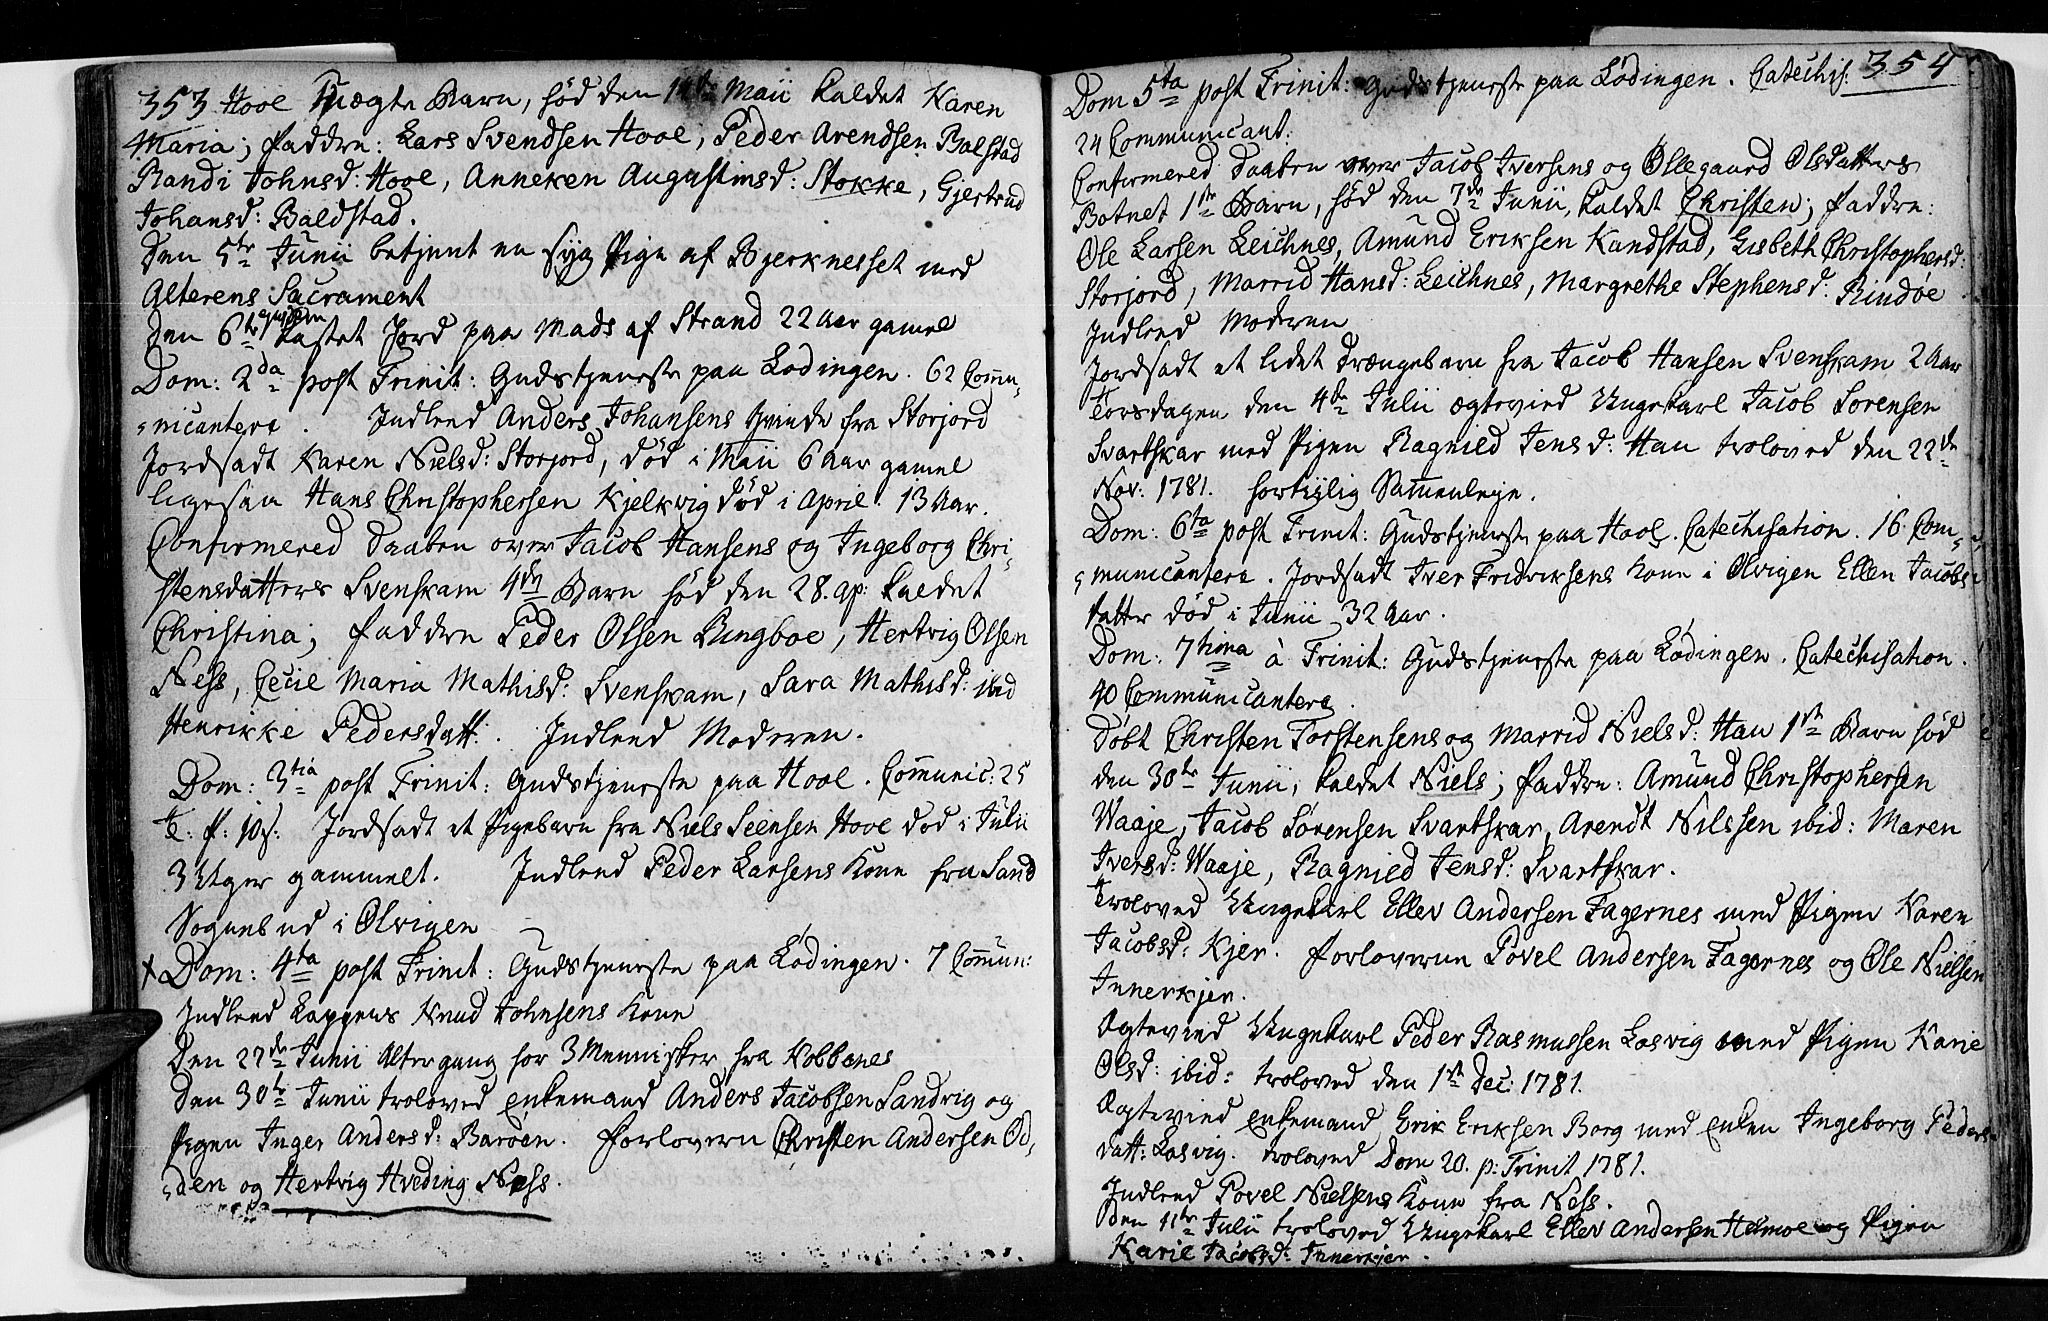 353 Hool Uægte Barn, fød den 14de Maii kaldet Karen
Maria; Faddre: Lars Svendsen Hool, Peder Arendsen Balstad
Randi Johnsd: Hool, Anneken Augustinsd: Stokke, Gjertrud
Johansd: Baldstad.
Den 5te Junii betjent en syg Pige af Bjerknesset med
Alterens Sacrament
Den 6te kastet Jord paa Mads af Strand 22 Aar gamel
Dom: 2da post Trinit: Gudstjeneste paa Lødingen. 62 Commu-
nicantere. Indleed Anders Johansens Qvinde fra Storjord
Jordsadt Karen Nielsd: Storjord, død i Maii 6 Aar gamel
ligesaa Hans Christophersen Kjelkvig død i April. 13 Aar.
Confirmered Daaben over Jacob Hansens og Ingeborg Chri-
stensdatters Svenskam 4de Barn fød den 28. ap: kaldet
Christina; Faddre Peder Olsen Ringboe, Hertvig Olsen
Ness, Cecie Maria Mathisd: Svenskam, Sara Mathisd: ibid
Henrikke Pedersdatt:. Indleed Moderen.
Dom: 3tia post Trinit: Gudstjeneste paa Hool. Communic: 25
T: P: 10 s: Jordsadt et Pigebarn fra Niels Seensen Hool død i Julii
3 Uger gammelt. Indleed Peder Larsens Kone fra Sand
Sognebud i Olvigen
x Dom: 4ta post Trinit: Gudstjeneste paa Lødingen. 7 Commun:
Indleed Lappens Knud Johnsens Kone
Den 27de Junii Altergang for 3 Mennisker fra Kobbenes
Den 30te Junii troloved enkemand Anders Jacobsen Sandvig og
Pigen Inger Andersd: Barøen. Forlovere Christen Andersen Od-
den og Hertvig Hveding Ness.
354
Dom 5ta post Trinit: Gudstjeneste paa Lødingen. Catechis:
24 Communicant:
Confirmered Daaben over Jacob Iversens og Ollegaard Olsdatters
Botnet 1ste Barn, fød den 7de Junii, kaldet Christen; Faddre:
Ole Larsen Leichnes, Amund Eriksen Kandstad, Lisbeth Christophersd:
Storjord, Marrid Hansd: Leichnes, Margrethe Stephensd: Rindøe
Indleed Moderen
Jordsadt et lidet Drængebarn fra Jacob Hansen Svenskam 2 Aar
Torsdagen den 4de Julii ægtevied Ungekarl Jacob Sørensen
Svartskar med Pigen Ragnild Jensd: Hau troloved den 22de
Nov: 1781. fortiilig Sammenleje.
Dom: 6ta post Trinit: Gudstjeneste paa Hool. Catechisation. 16 Com-
municantere. Jordsadt Iver Fridriksens Kone i Olvigen Ellen Jacobs-
datter død i Junii 32 Aar.
Dom: 7tima à Trinit: Gudstjeneste paa Lødingen. Catechisation.
40 Communicantere.
Døbt Christen Torstensens og Marrid Nielsd: Hau 1ste Barn fød
den 30te Junii, kaldet Niels; Faddre: Amund Christophersen
Waaje, Jacob Sørensen Svartskar, Arendt Nilssen ibid: Maren
Iversd: Waaje, Ragnied Jensd: Svartskar.
Troloved Ungekarl Ellev Andersen Fagernes med Pigen Karen
Jacobsd: Kjer. Forloverne Povel Andersen Fagernes og Ole Nielsen
Innerkjer.
Ægtevied Ungekarl Peder Rasmussen Losvig med Pigen Karie
Olsd: ibid: troloved den 1ste Dec: 1781.
Ægteviid enkemand Erik Eriksen Borg med enken Ingeborg Peders-
datt: Losvig. troloved Dom 20. p: Trinit 1781.
Indleed Povel Nielsens Kone fra Ness.
Den 11te Julii troloved Ungekarl Ellev Andersen Helmoe og Pigen
Karie Jacobsd: Innerkjer.